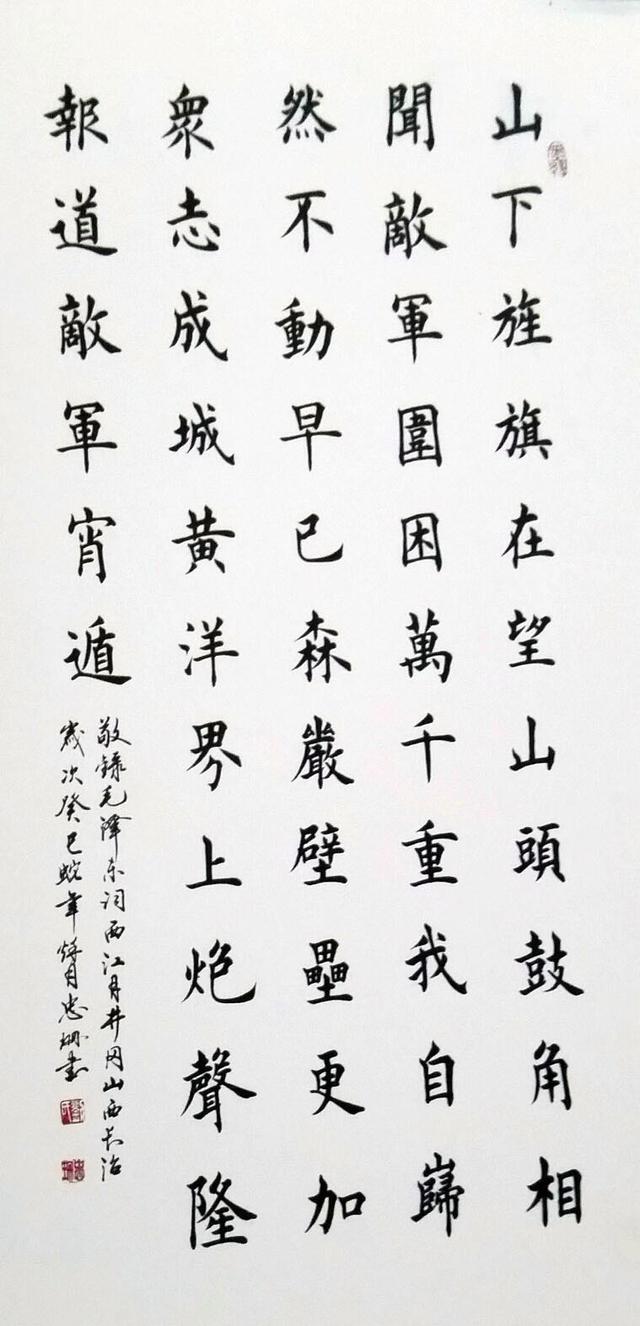 山下旌旗在望山頭鼓角相
聞敵軍圍困萬千重我自巋
然不動早已森嚴壁壘更加
衆志成城黄洋界上炮聲隆
報道敵軍宵遁
敬録毛泽东词西江月井冈山西长治
歲次癸巳蛇年月忠書